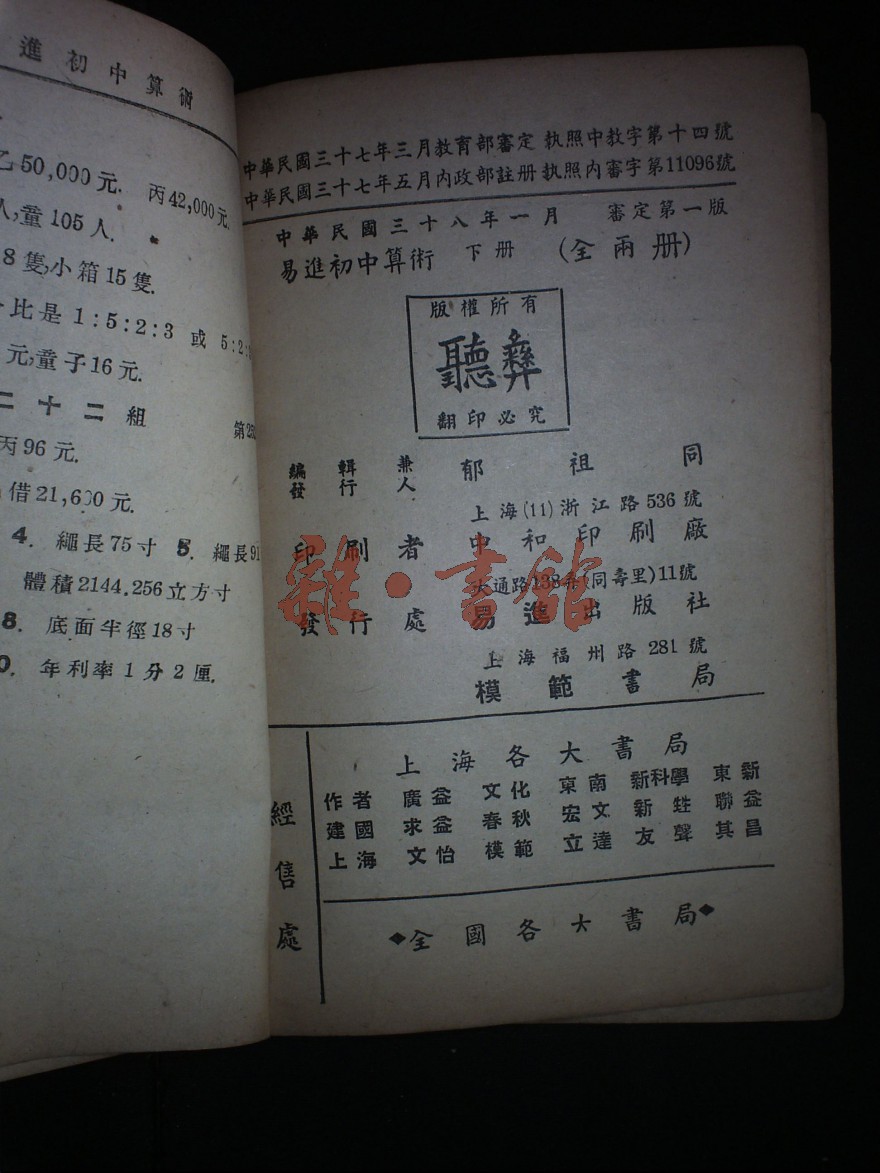 進初中算術
乙50,000元. 丙42,000元.
人,童105人.
8隻,小箱15隻.
比是1:5:2:3 或 5:2:
元,童子16元.
二十二組 第25
丙96元.
借21,600元.
4. 繩長75寸 5. 繩長91
體積2144.256立方寸
8. 底面半徑18寸
0. 年利率1分2厘.
中華民國三十七年三月教育部審定 執照中教字第十四號
中華民國三十七年五月內政部註册執照內審字第11096號
中華民國三十八年一月 審定第一版
易進初中算術 下册 (全兩册)
版權所有
聽彝
翻印必究
編輯兼發行人 郁祖同
上海(11)浙江路536號
印刷者 中和印刷廠
大通路138弄(同壽里)11號
發行處 易進出版社
上海福州路281號
模範書局
雜·書館
經售處
上海各大書局
作者 廣益 文化 東南 新科學 東新
建國 求益 春秋 宏文 新甡 聯益
上海 文怡 模範 立達 友聲 其昌
◆全國各大書局◆